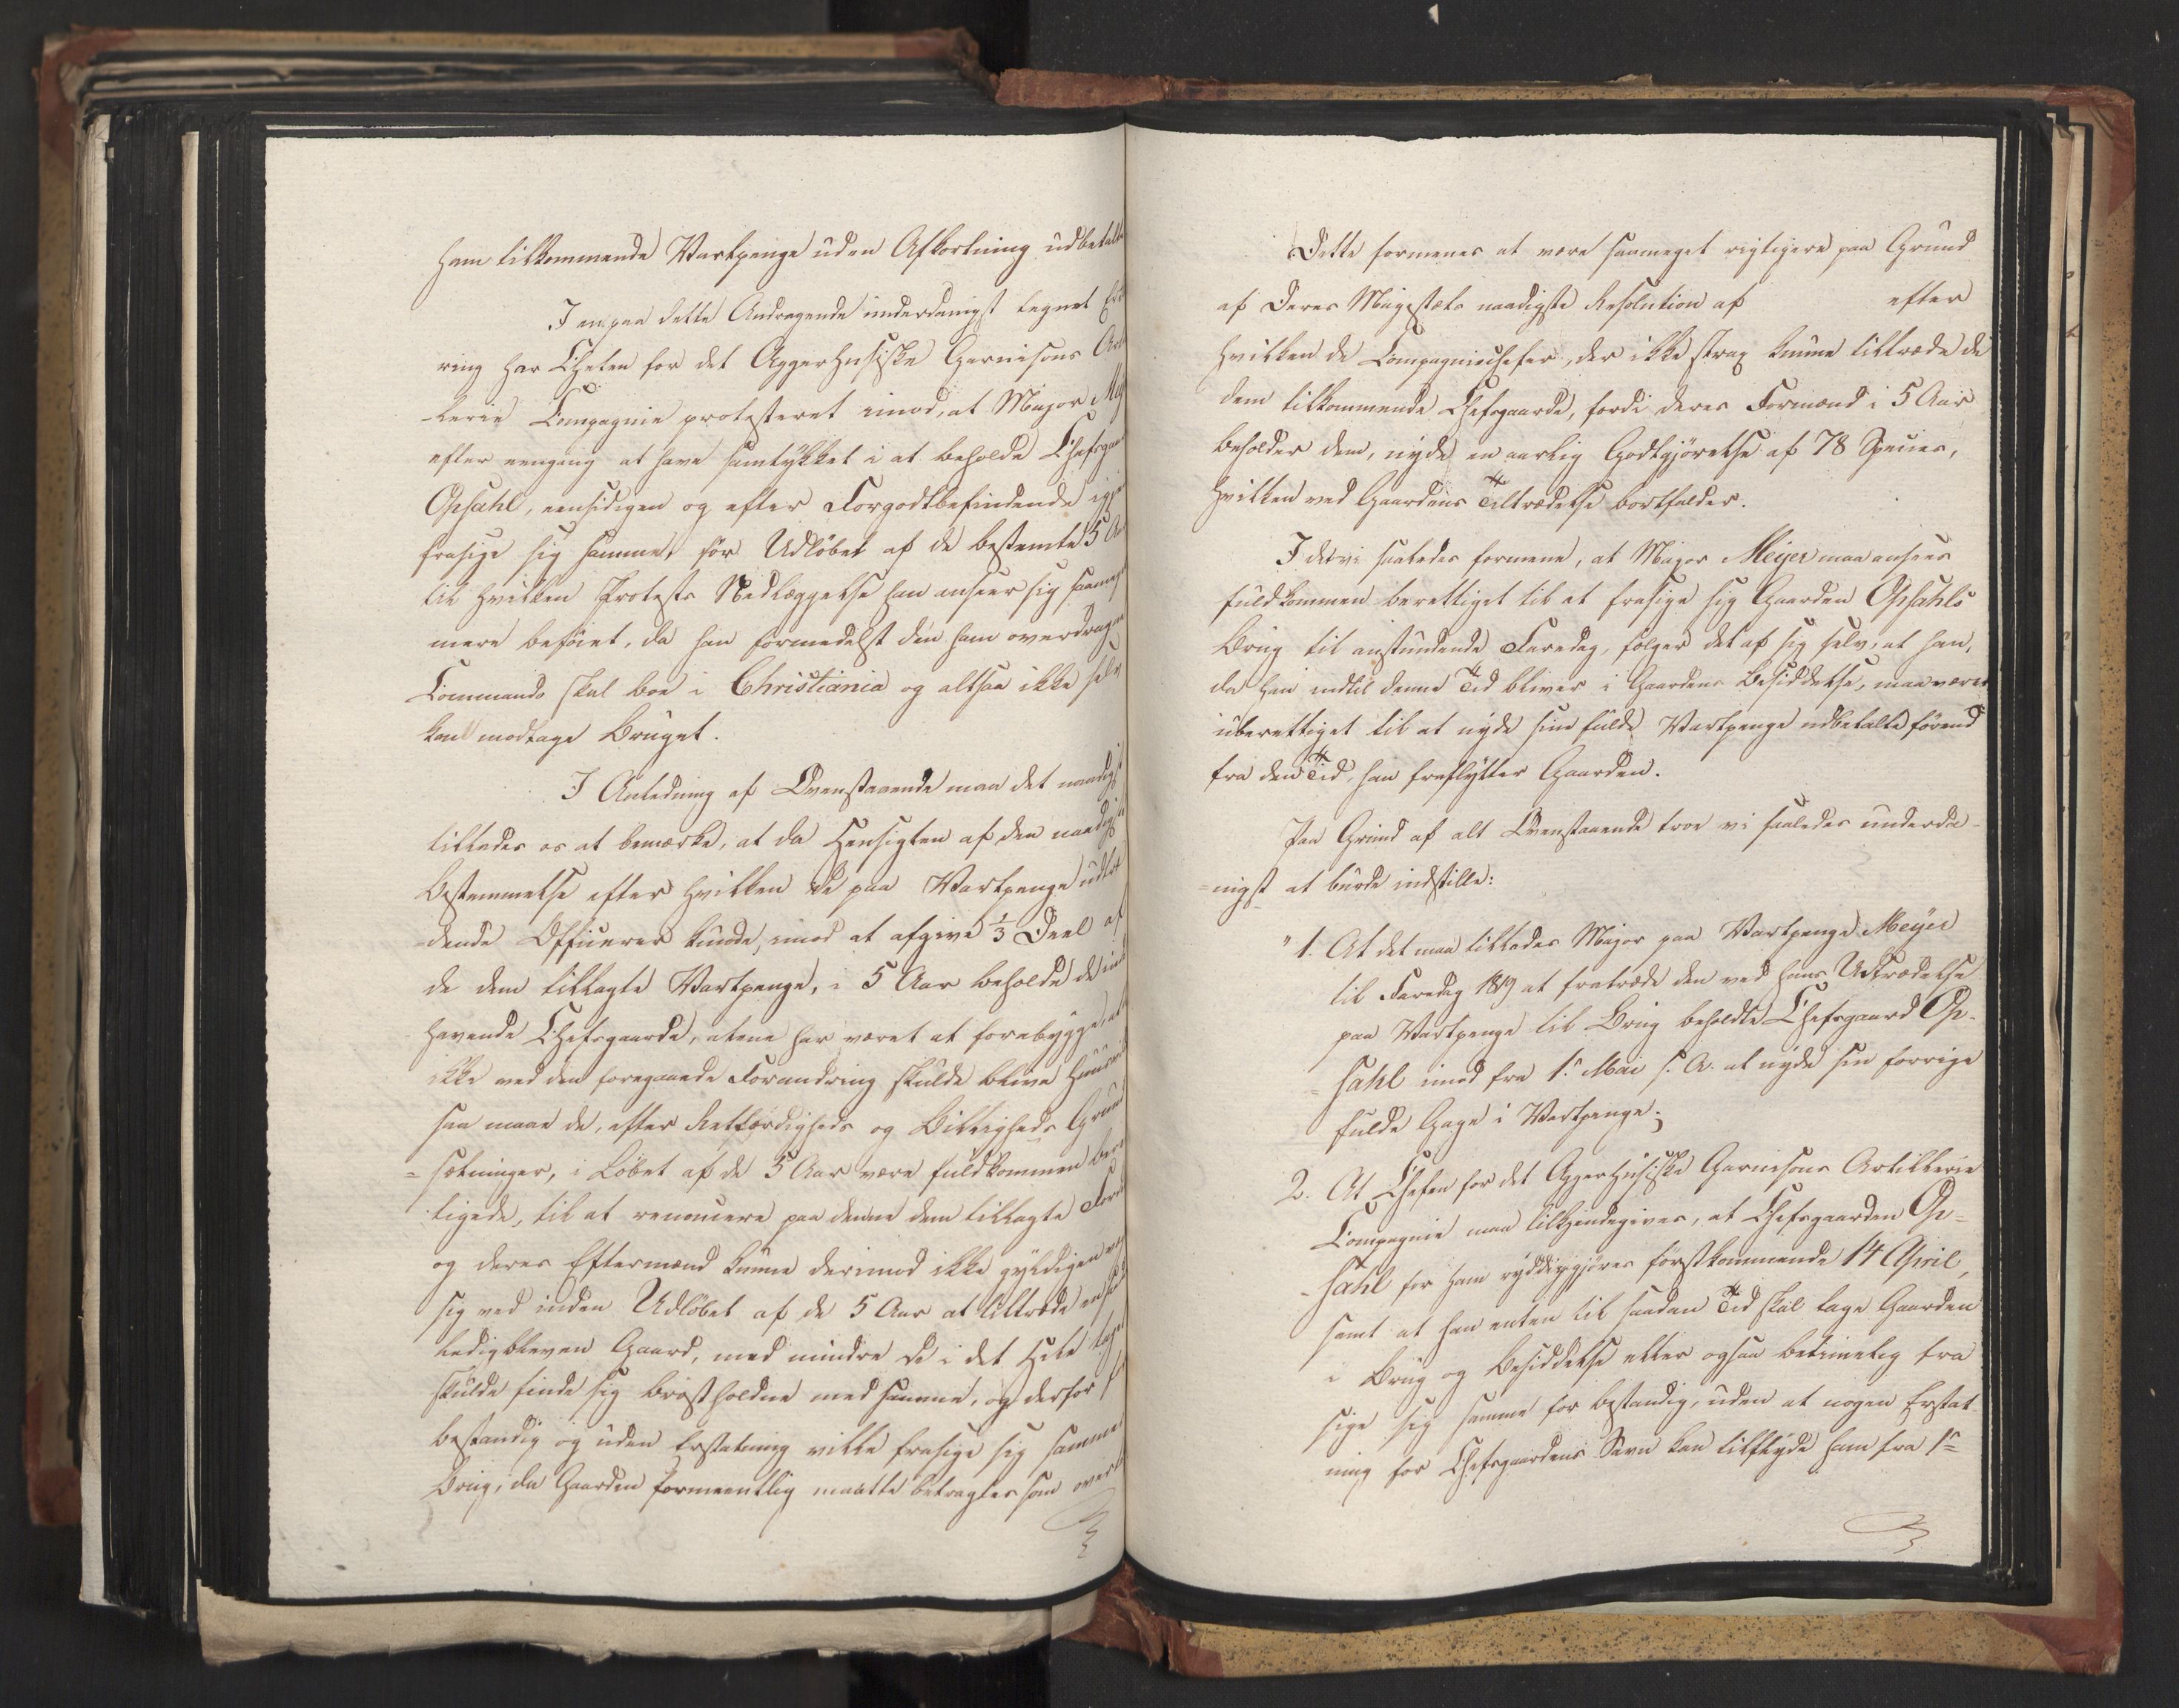 ham tilkommende Vartpenge uden Afkortning udbetalte
I en paa dette Andragende underdanigst tegnet Erklæ
ring har Chefen for det Aggerhusiske Garnisons Artil
-lerie Compagnie protesteret imod, at Major Mey
efter eengang at have samtykket i at beholde Chefsgaar
Opsahl, eensidigen og efter Forgodtbefindende igjen
frasige sig samme, før Udløbet af de bestemte 5 Aar
til hvilken Protests Nedlæggelse han anseer sig saameget
mere beføiet, da han formedelst den ham overdragne
Commando skal boe i Christiania og altsaa ikke selv
kan modtage Bruget.
I Anledning af Ovenstaaende maa det naadigst
tillades os at bemærke, at da Hensigten af den naadigste
Bestemmelse efter hvilken de paa Vartpenge udtræ
-dende Officerer kunde, imod at afgive 1/3 Deel af
de dem tillagte Vartpenge, i 5 Aar beholde de inde
havende Chefsgaarde, alene har været at forebygge, at
ikke ved den foregaaende Forandring skulde blive huusvilde
saa maae de, efter Retfærdigheds og Billigheds Grund
=sætninger, i Løbet af de 5 Aar være fuldkommen beret
tigede, til at renoncere paa denne dem tillagte Fordel
og deres Eftermænd kunne derimod ikke gyldigen
sig ved inden Udløbet af de 5 Aar at tiltræde en saa
ledigbleven Gaard, med mindre de i det Hele taget
skulde finde sig brøstholdne med samme, og derfor for
bestandig og uden Erstatning ville frasige sig samme
Brug, da Gaarden formeentlig maatte betragtes som over
Dette formenes at være saameget rigtigere paa Grund
af Deres Majestæts naadigste Resolution af efter
hvilken de Compagniechefer, der ikke strax kunne tiltræde de
dem tilkommende Chefsgaarde, fordi deres Formænd i 5 Aar
beholder dem, nyde en aarlig Godtgjørelse af 78 Species,
hvilken ved Gaardens Tiltrædelse bortfalder.
I det vi saaledes formene, at Major Meijer maa ansees
fuldkommen berettiget til at frasige sig Gaarden Opsahls
Brug til anstundende Faredag, følger det af sig selv, at han,
da han indtil denne Tid bliver i Gaardens Besiddelse, maa være
uberettiget til at nyde sine fulde Vartpenge udbetalte førend
fra den Tid, han fraflytter Gaarden.
Paa Grund af alt Ovenstaaende troe vi saaledes underda-
=nigst at burde indstille:
"1. At det maa tillades Major paa Vartpenge Meyer
til Faredag 1819 at fratræde den ved hans Udtrædelse
paa Vartpenge til Brug beholdte Chefsgaard Op-
=sahl imod fra 1s Mai s. A. at nyde sin forrige
fulde Gage i Vartpenge;
2. At Chefen for det Aggerhusiske Garnisons Artillerie
Compagnie maa tilkjendegives, at Chefsgaarden Op=
-sahl for ham ryddiggjøres førstkommende 14 April,
samt at han enten til saadan Tid skal tage Gaarden
i Brug og Besiddelse eller ogsaa betimelig fra
sige sig samme for bestandig, uden at nogen Erstat
ning for Chefsgaardens Savn kan tilflyde ham fra 1s